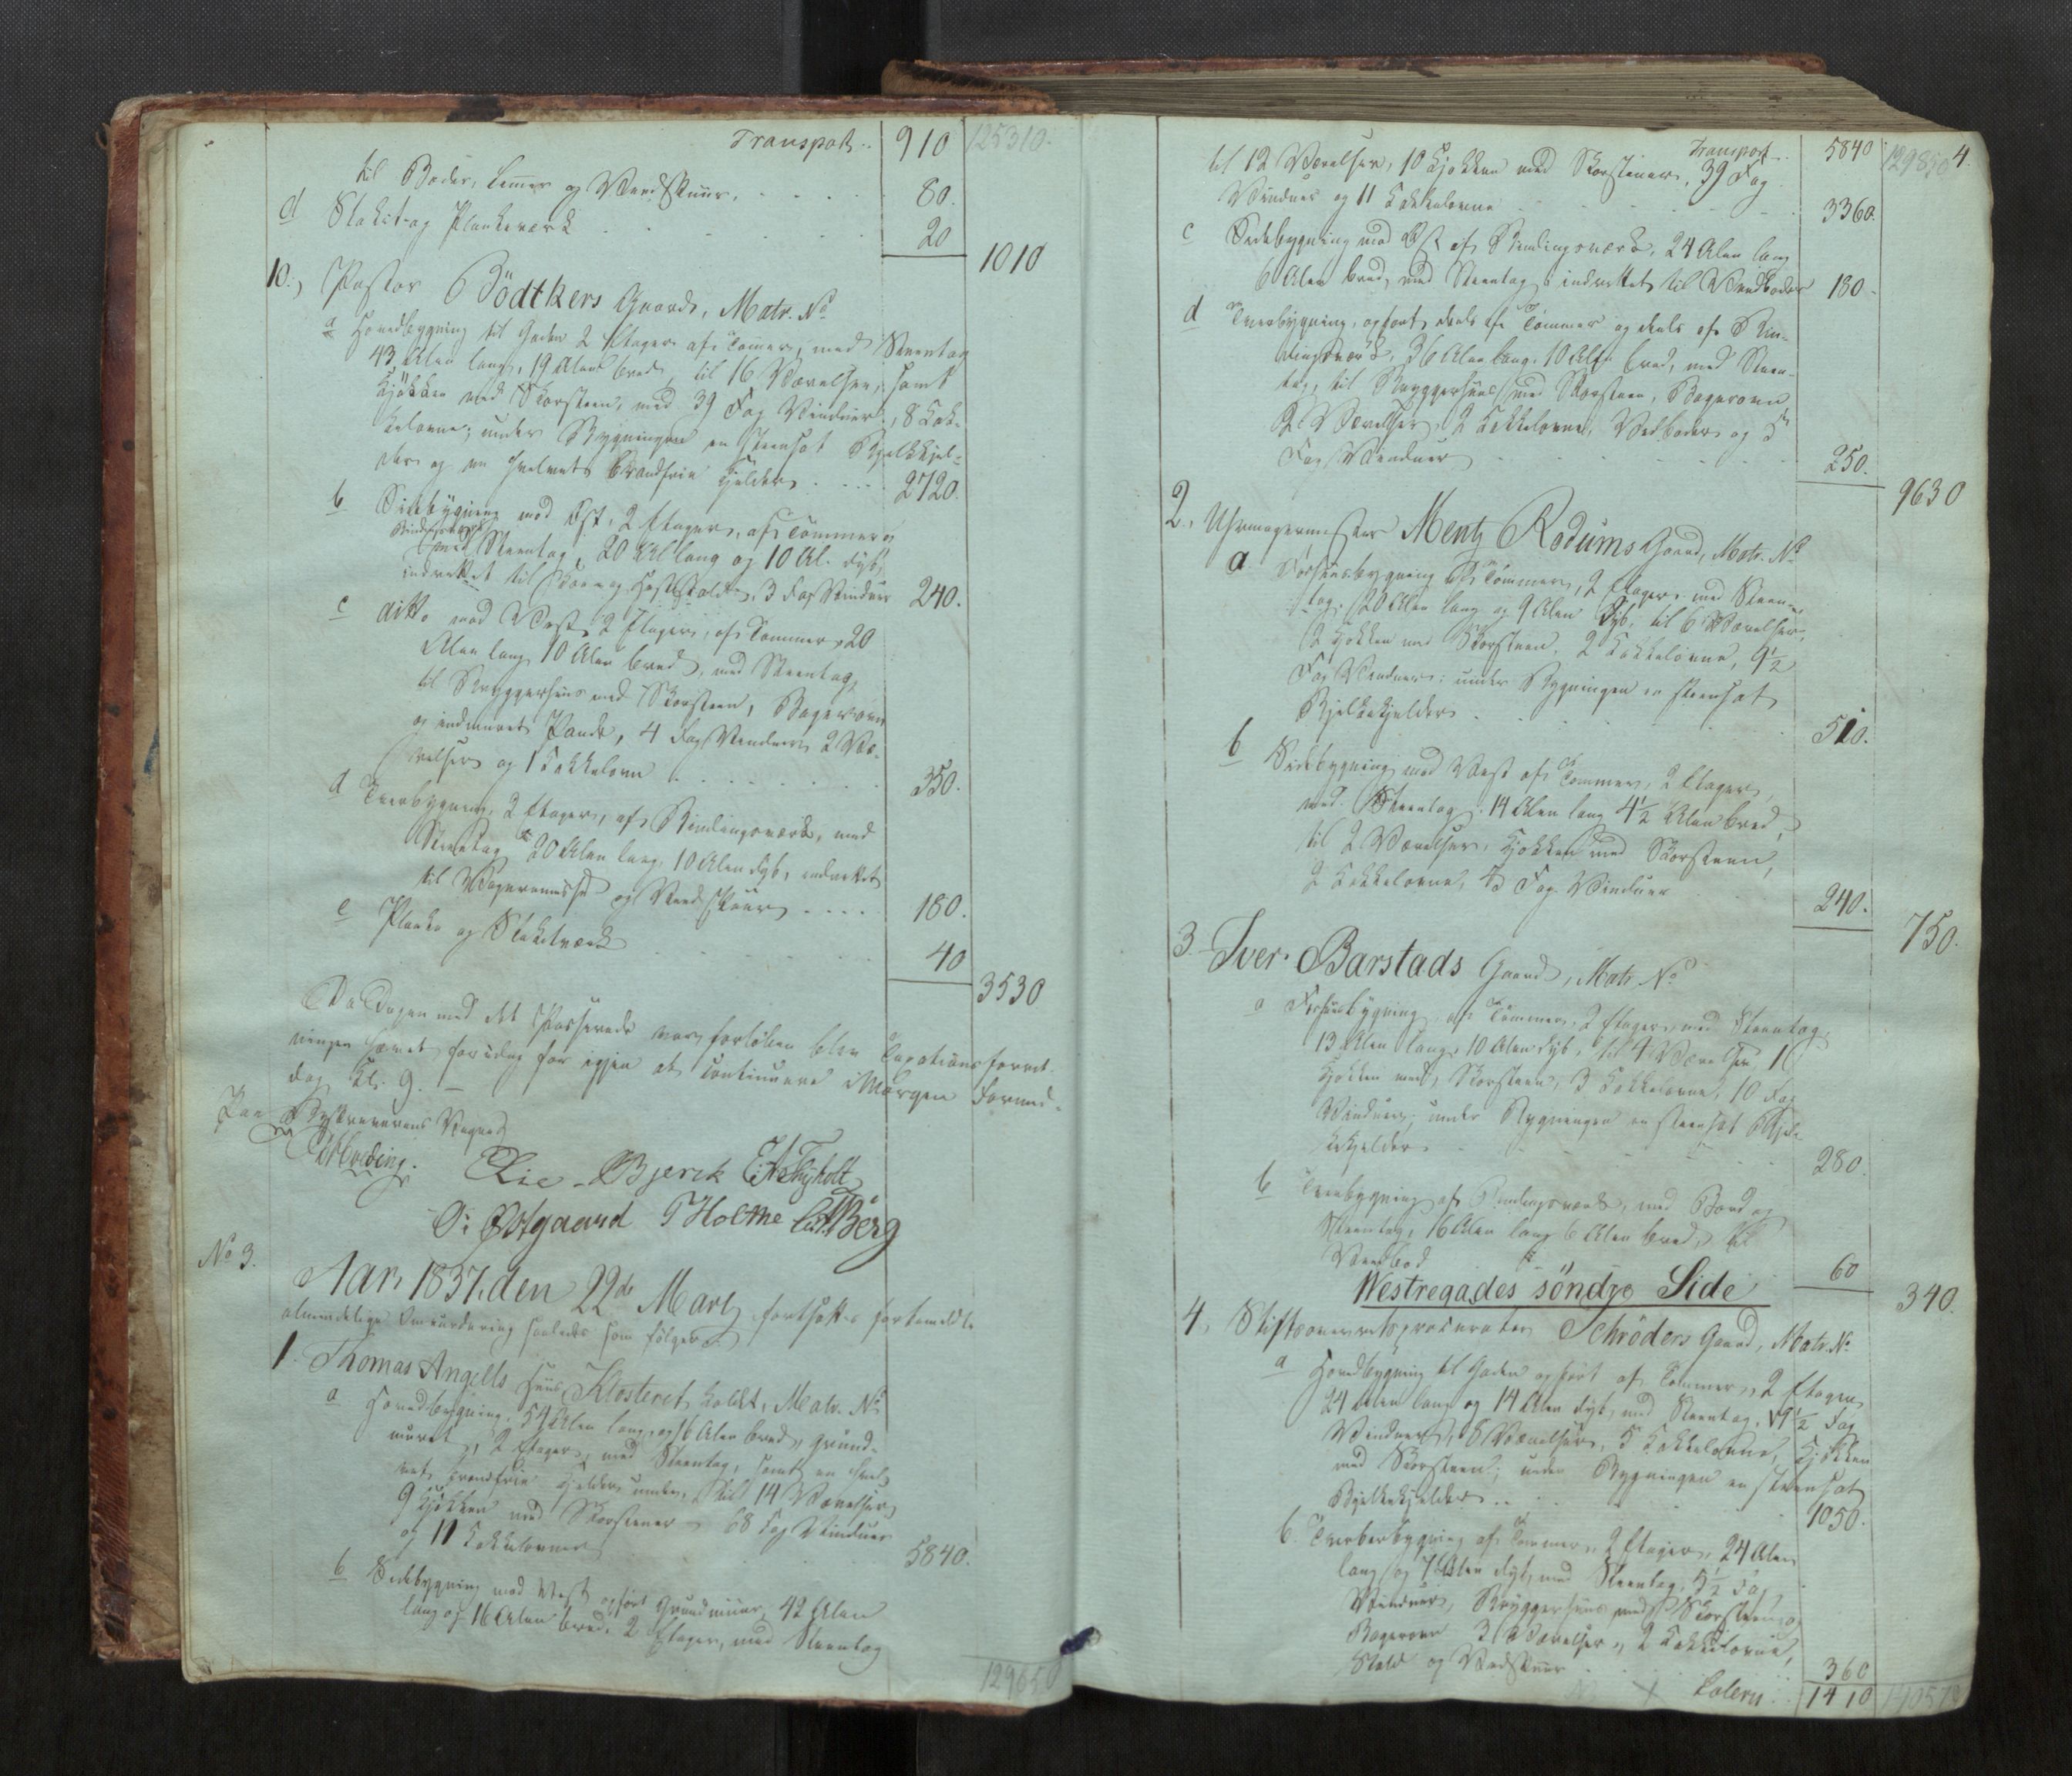 Transport .. 910 125310.
til Boder, Lemer og Vedskuur. 80.
d Stakit- og Plankeværk 20
1010
10., Pastor Bödtkers Gaard, Matr. No
a Hovedbygning til Gaden 2 Etager af Tömmer, med Steentag
43 Alen lang, 19 Alen bred, til 16 Værelser, samt
Kjökken med Skorsteen, med 39 Fag Vinduer, 8 Kak-
kelovne; under Bygningen en steensat Bjelkekjel-
der og en hvelvet brandfrie Kjelder .... 2720.
b Sidebygning mod Öst, 2 Etager, af Tömmer og
Bindingsværk
med Steentag, 20 Al. lang og 10 Al. dyb,
indrettet til Hestestald, 3 Fag Vinduer 240.
c ditto mod Vest, 2 Etager, af Tömmer, 20
Alen lang, 10 Alen bred, med Steentag,
til Bryggerhuus med Skorsteen, Bagerovn
og indmuret Pande, 4 Fag Vinduer, 2 Væ-
relser og 1 Kakkelovn 350.
d Tverbygning, 2 Etager, af Bindingsværk, med
Steentag 20 Alen lang, 10 Alen dyb, indrettet
til Vognremisse og Vedskuur .... 180.
e Planke og Stakitværk 40
3530
Da Dagen med det Passerede var forløben blev Taxationsforret-
ningen hævet for idag for igjen at continuere i Morgen Formid-
dag Kl. 9. —
Paa Byskriverens Vegne
Elie Bjerck E: A: Thyholt
O: Østgaard P Holme Berg
No 3.
Aar 1837, den 22de Marts fortsattes fortemeldte
almindelige Omvurdering saaledes som følger:
1. Thomas Angells Huus Klosteret kaldt, Matr. No
a Hovedbygning, 54 Alen lang, og 16 Alen bred, grund-
muret, 2 Etager, med Steentag, samt en hvel-
vet brandfrie Kjelder under, til 14 Værelser
9 Kjökken med Skorstener 68 Fag Vinduer
og 11 Kakkelovner 5840.
b Sidebygning mod Vest opført Grundmuur, 42 Alen
lang og 16 Alen bred, 2 Etager, med Steentag
129850
Transport .. 5840 129850 4.
til 12 Værelser, 10 Kjøkken med Skorstener, 39 Fag
Vinduer og 11 Kakkelovne 3360.
c Sidebygning mod Öst af Bindingsværk, 24 Alen lang
6 Alen bred, med Steentag, indrettet til Vedboder 180.
d Tverbygning, opført deels af Tömmer og deels af Bin-
dingsværk, 36 Alen lang, 10 Alen bred, med Steen-
tag, til Bryggerhuus med Skorsteen, Bagerovn
2 Værelser, 2 Kakkelovne, Vedboder og 5
Fag Vinduer 250.
9630
2., Uhrmagermester Mentz Rodums Gaard, Matr. No
a Forhuusbygning af Tömmer, 2 Etager med Steen-
tag, 20 Alen lang og 9 Alen dyb, til 6 Værelser,
2 Kjökken med Skorsteen, 2 Kakkelovne, 9½
Fag Vinduer: under Bygningen en steensat
Bjelkekjelder 510.
b Sidebygning mod Vest af Tømmer, 2 Etager,
med Steentag, 14 Alen lang 4½ Alen bred,
til 2 Værelser, Kjøkken med Skorsteen,
2 Kakkelovne, Fag Vinduer 240.
750.
3. Iver Barstads Gaard, Matr. No
a Forhuusbygning af Tömmer, 2 Etager, med Steentag,
13 Alen lang, 10 Alen dyb, til 4 Værelser, 1
Kjøkken med Skorsteen, 3 Kakkelovne, 10 Fag
Vinduer, under Bygningen en steensat Bjel-
kekjelder 280.
b Tverbygning af Bindingsværk, med Bord og
Steentag, 16 Alen lang 6 Alen bred, til
Vedbod 60
340.
Westregades söndre Side
4, Stiftsoverretsprocurator Schröders Gaard, Matr. No
a Hovedbygning til Gaden opfört af Tømmer, 2 Etager,
24 Alen lang og 14 Alen dyb, med Steentag, 19½ Fag
Vinduer, 8 Værelser, 5 Kakkelovne, Kjökken
med Skorsteen; under Bygningen en steensat
Bjelkekjelder .. 1050.
b. Tverbygning af Tømmer, 2 Etager, 24 Alen
lang og 7 Alen dyb, med Steentag, 5½ Fag
Vinduer, Bryggerhuus med Skorsteen og
Bagerovn 3 Værelser, 2 Kakkelovne,
Stald og Vedskuur 360
Lateris .. 1410 140570